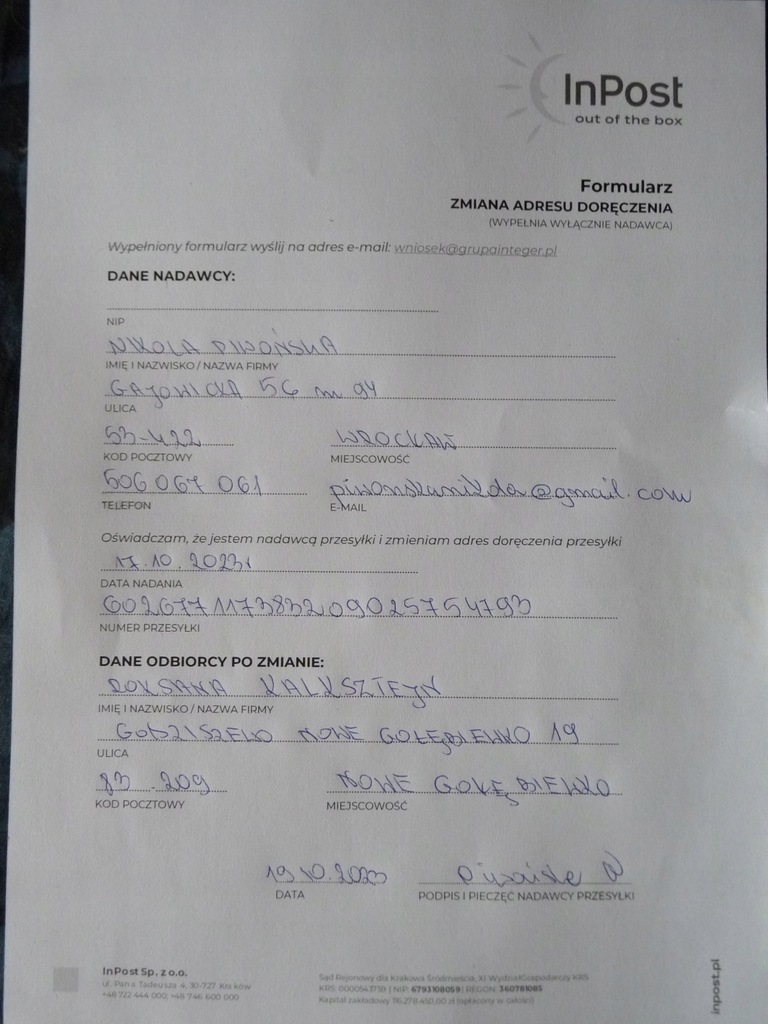 InPost
out of the box
Formularz
ZMIANA ADRESU DORĘCZENIA
(WYPEŁNIA WYŁĄCZNIE NADAWCA)
Wypełniony formularz wyślij na adres e-mail: wniosek@grupainteger.pl
DANE NADAWCY:
NIP
NIKOLA PIWOŃSKA
IMIĘ I NAZWISKO / NAZWA FIRMY
GAJOWICKA 56 m 94
ULICA
53-422 WROCŁAW
KOD POCZTOWY MIEJSCOWOŚĆ
506 067 061
TELEFON E-MAIL
Oświadczam, że jestem nadawcą przesyłki i zmieniam adres doręczenia przesyłki
17.10.2023r
DATA NADANIA
602677117383209025754793
NUMER PRZESYŁKI
DANE ODBIORCY PO ZMIANIE:
ROKSANA KALKSZTEJN
IMIĘ I NAZWISKO / NAZWA FIRMY
GODZISZEWO NOWE GOŁĘBIEWKO 19
ULICA
83-209 NOWE GOŁĘBIEWKO
KOD POCZTOWY MIEJSCOWOŚĆ
19.10.2023
DATA PODPIS I PIECZĘĆ NADAWCY PRZESYŁKI
InPost Sp. z o.o.
ul. Pana Tadeusza 4, 30-727 Kraków
+48 722 444 000; +48 746 600 000
Sąd Rejonowy dla Krakowa Śródmieścia, XI Wydział Gospodarczy KRS
KRS: 0000543759 | NIP: 6793108059 | REGON: 360781085
Kapitał zakładowy 116 278 450,00 zł (opłacony w całości)
inpost.pl